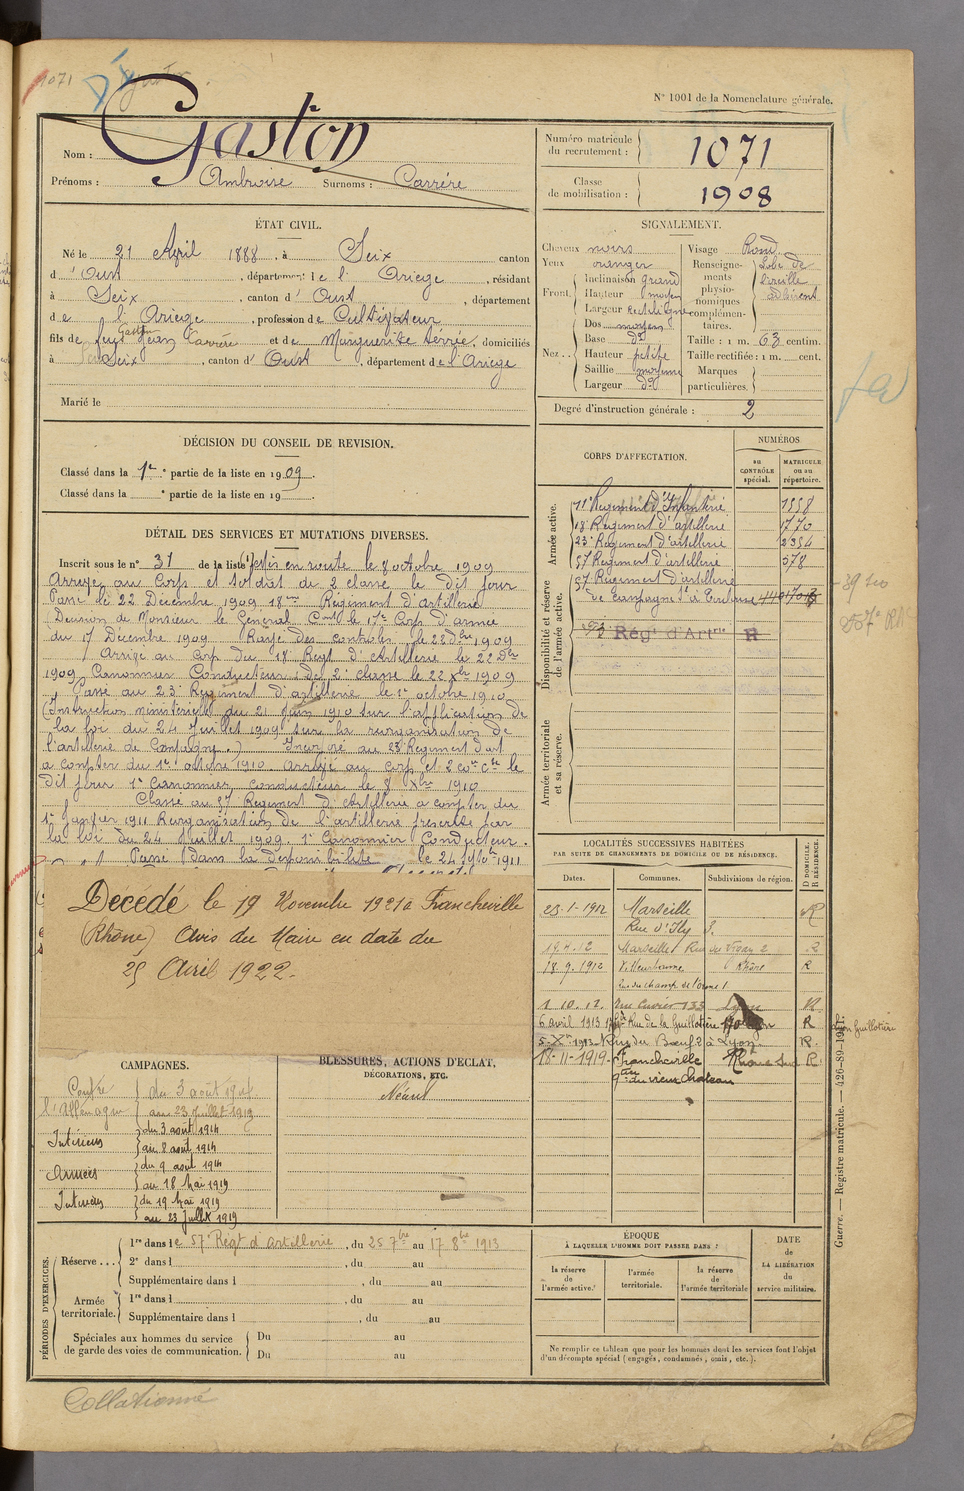 1071
N° 1001 de la Nomenclature générale.
Nom : Gaston
Prénoms : Ambroise Surnoms : Carrère
Numéro matricule du recrutement : 1071
Classe de mobilisation : 1908
ÉTAT CIVIL.
Né le 21 April 1888, à Seix canton
d'Oust, département de l'Ariege, résidant
à Seix, canton d'Oust, département
de l'Ariege, profession de Cultivateur
fils de feu Gaston Jean Carrère et de Marguerite Servée, domiciliés
à Seix, canton d'Oust, département de l'Ariege
Marié le
SIGNALEMENT.
Cheveux noirs
Yeux oranger
Front. Inclinaison grand
Hauteur moyen
Largeur Rectiligne
Nez .. Dos moyen
Base do
Hauteur petite
Saillie moyenne
Largeur do
Visage Rond
Renseignements physionomiques complémentaires. Lobe de l'oreille adhérent
Taille : 1 m. 63 centim.
Taille rectifiée : 1 m. cent.
Marques particulières.
Degré d'instruction générale : 2
DÉCISION DU CONSEIL DE REVISION.
Classé dans la 1re partie de la liste en 1909.
Classé dans la ° partie de la liste en 19 .
DÉTAIL DES SERVICES ET MUTATIONS DIVERSES.
Inscrit sous le n° 31 de la liste (1) Mis en route le 8 octobre 1909
Arrivé au Corps et soldat de 2 classe le dit jour
Passé le 22 Décembre 1909 18me Régiment d'Artillerie
(Décision de Monsieur le Général Comt le 17e Corp d'armée
du 17 Décembre 1909 Rayé des controles le 22 dbre 1909
Arrivé au Corp du 18e Regt d'Artillerie le 22 Dbre
1909 Canonnier Conducteur de 2e classe le 22 Xbre 1909
Passé au 23e Regiment d'artillerie le 1er octobre 1910
(Instruction ministerielle du 21 Juin 1910 sur l'application de
la loi du 24 Juillet 1909 sur la reorganisation de
l'artillerie de Campagne.) Incorporé au 23 Regiment d'art
a compter du 1er octobre 1910 arrivé au corp et 2e con cte le
dit jour 1e Canonnier conducteur le 8 Xbre 1910
Classé au 57 Regiment d'Artillerie a compter du
1er Janvier 1911 Reorganisation de l'artillerie prescrite par
la loi du 24 Juillet 1909. 1e Canonnier Conducteur.
Passé dans la disponibilité le 24 septbre 1911
Décédé le 19 Novembre 1921 à Francheville
(Rhône) Avis du Maire en date du
25 Avril 1922.
CORPS D'AFFECTATION.
NUMÉROS
au CONTRÔLE spécial.
MATRICULE ou au répertoire.
Armée active.
Régiment d'Infanterie 1558
18e Regiment d'artillerie 1770
23e Regiment d'artillerie 2354
57 Regiment d'artillerie 578
Disponibilité et réserve de l'armée active.
57 Regiment d'artillerie
de Campagne à Toulouse
Régt d'Artie R
Armée territoriale et sa réserve.
LOCALITÉS SUCCESSIVES HABITÉES
PAR SUITE DE CHANGEMENTS DE DOMICILE OU DE RÉSIDENCE.
Dates. Communes. Subdivisions de région. D DOMICILE. R RÉSIDENCE.
23-1-1912 Marseille R
Rue d'Isly 5.
19.4.12 Marseille Rue du Vigan 2 R
18.9.1912 Villeurbanne Rhône R
Rue du champ de l'Orme 1
1 10.12. Rue Cuvier 133 Lyon R
6 avril 1913 Rue de la Guillotière Lyon R
5-Xe 1913 Rue du Bœuf 2 à Lyon R.
18-11-1919 Francheville Rhône Sud R
qer du vieux chateau
CAMPAGNES.
Contre l'Allemagne du 3 août 1914
au 23 juillet 1919
Intérieur du 3 août 1914
au 8 août 1914
Armées du 9 août 1914
au 18 Mai 1919
Intérieur du 19 Mai 1919
au 23 Juillet 1919
BLESSURES, ACTIONS D'ÉCLAT,
DÉCORATIONS, ETC.
Néant
PÉRIODES D'EXERCICES.
Réserve ... 1re dans le 57e Régt d'Artillerie, du 25 7bre au 17 8bre 1913
2e dans l , du au
Supplémentaire dans l , du au
Armée territoriale. 1re dans l , du au
Supplémentaire dans l , du au
Spéciales aux hommes du service de garde des voies de communication. Du au
Du au
ÉPOQUE
À LAQUELLE L'HOMME DOIT PASSER DANS :
la réserve de l'armée active.
l'armée territoriale.
la réserve de l'armée territoriale
DATE de LA LIBÉRATION du service militaire.
Ne remplir ce tableau que pour les hommes dont les services font l'objet
d'un décompte spécial (engagés, condamnés, omis, etc.).
Guerre. — Registre matricule. — 426-89-1911.
Collationné